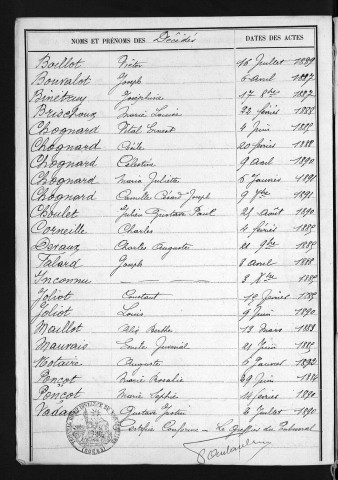 NOMS ET PRÉNOMS DES Décédés DATES DES ACTES
Boillot Victor 16 Juillet 1889
Bouvalot Joseph 6 avril 1887
Binétruy Joséphine 17 8bre 1887
Brischoux Marie Louise 22 février 1885
Chognard Vital Ernest 4 Juin 1885
Chognard Cécile 20 février 1888
Chognard Célestine 9 avril 1890
Chognard Maria Juliette 6 Janvier 1891
Chognard Camille Césard Joseph 9 7bre 1891
Choulet Julien Gustave Paul 25 Août 1890
Corneille Charles 4 février 1885
Charles Auguste 21 9bre 1885
Falard Joseph 8 avril 1888
Inconnu 3 Xbre 1885
Joliot Constant 15 février 1885
Joliot Louis 9 Juin 1890
Maillot Alix Berthe 13 mars 1883
Mauvais Emile Juvénal 21 Juin 1885
Notaire Auguste 6 Janvier 1892
Ponçot Marie Rosalie 29 Juin 1884
Ponçot Marie Sophie 14 février 1890
Vadam Gustave Justin 6 Juillet 1890
Certifié Conforme - Le Greffier du Tribunal